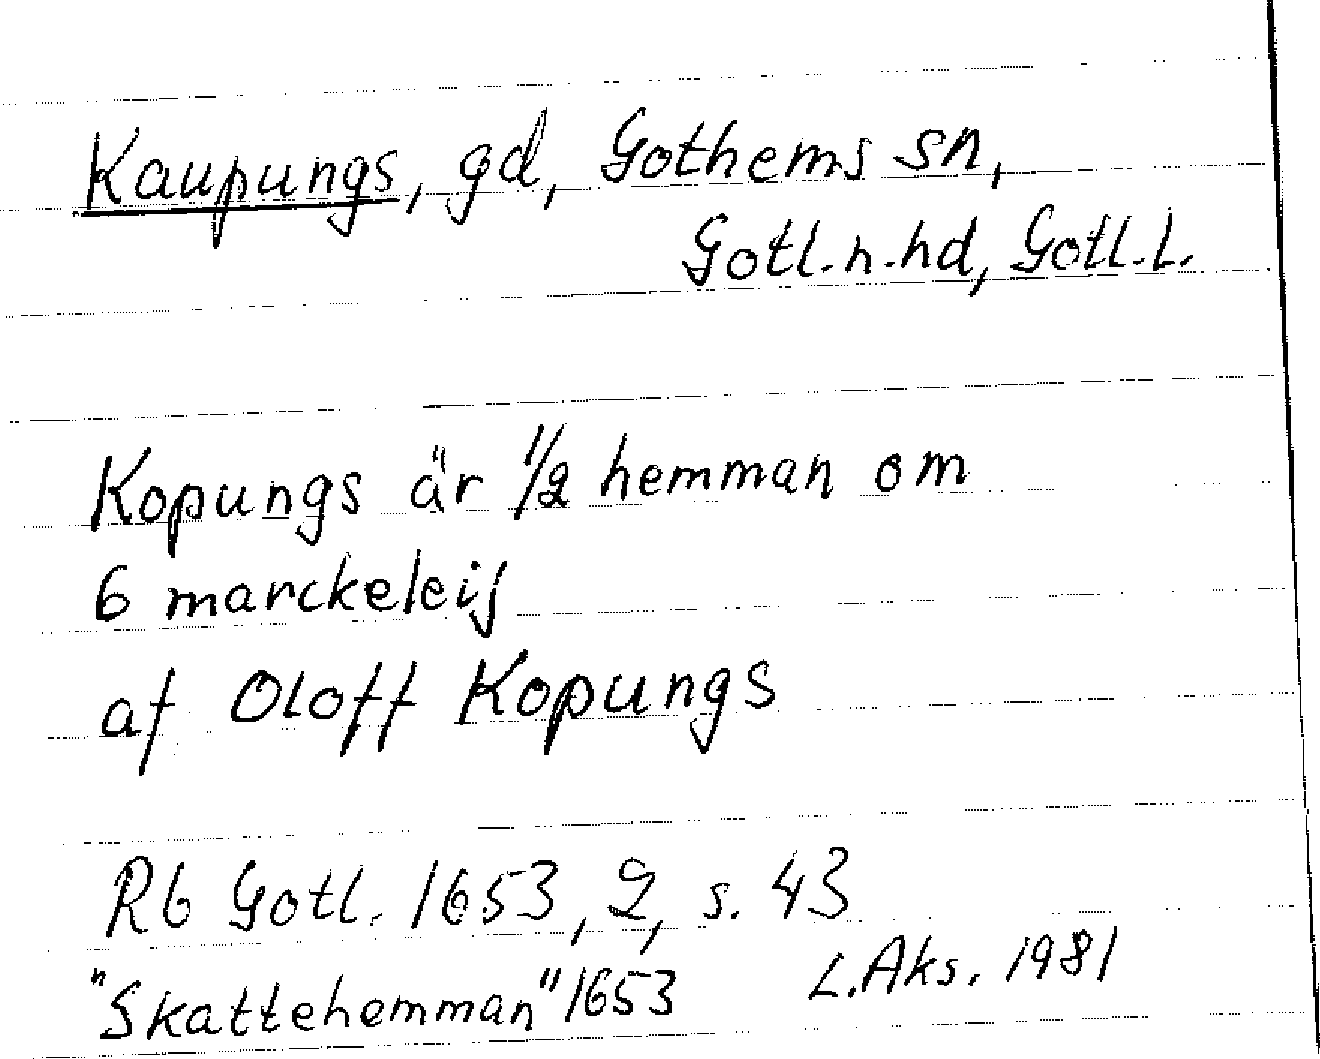 Kaupungs, gd, Gothems sn,
Gotl.n.hd, Gotl.l.
Kopungs är 1/2 hemman om
6 marckeleij
af Oloff Kopungs
Rb Gotl. 1653, 2, s. 43
"Skattehemman" 1653
L.Aks. 1981